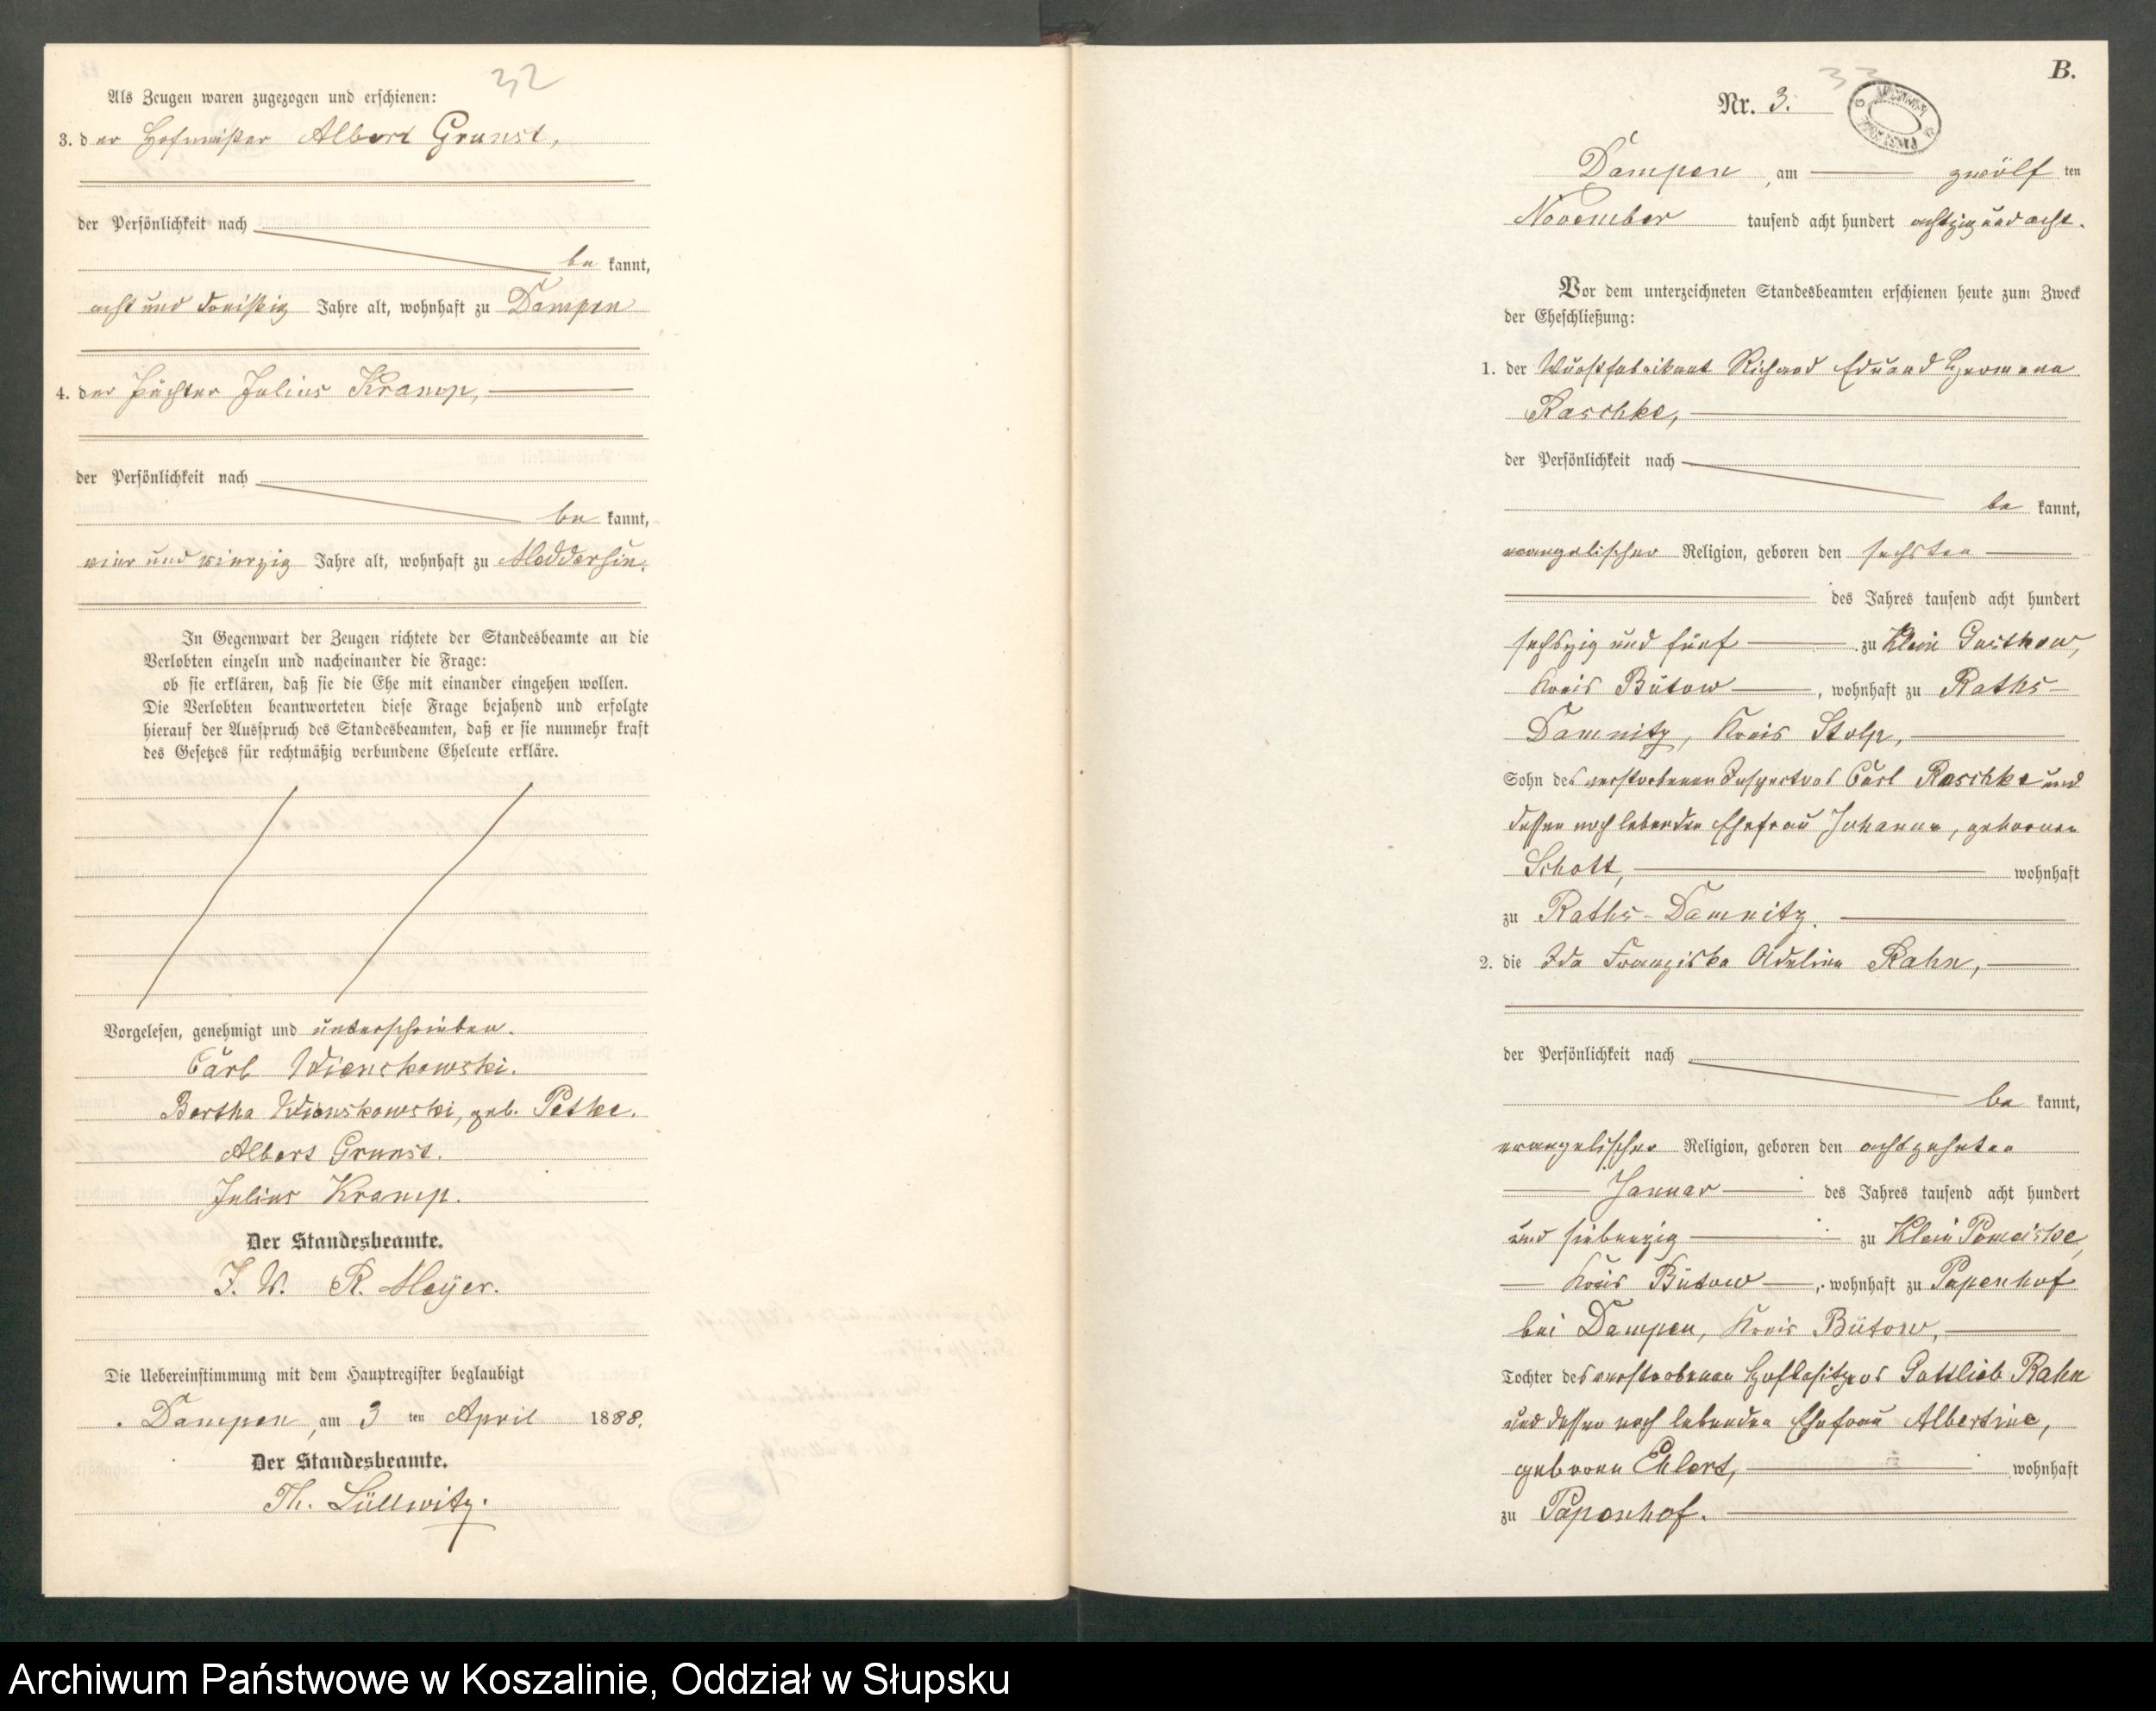 32
Als Zeugen waren zugezogen und erschienen:
3. der Hofmeister Albert Grunst,
der Persönlichkeit nach
be kannt,
acht und dreißig Jahre alt, wohnhaft zu Dampen
4. der Pächter Julius Kramp,
der Persönlichkeit nach
be kannt,
vier und vierzig Jahre alt, wohnhaft zu Moddersin.
In Gegenwart der Zeugen richtete der Standesbeamte an die
Verlobten einzeln und nacheinander die Frage:
ob sie erklären, daß sie die Ehe mit einander eingehen wollen.
Die Verlobten beantworteten diese Frage bejahend und erfolgte
hierauf der Ausspruch des Standesbeamten, daß er sie nunmehr kraft
des Gesetzes für rechtmäßig verbundene Eheleute erkläre.
Vorgelesen, genehmigt und unterschrieben.
Carl Wienskowski.
Bertha Wienskowski, geb. Pethke.
Albert Grunst.
Julius Kramp.
Der Standesbeamte.
I. V. R. Meyer.
Die Uebereinstimmung mit dem Hauptregister beglaubigt
Dampen, am 3 ten April 1888.
Der Standesbeamte.
Th. Lüllwitz.
B.
33
Nr. 3.
Dampen, am zwölf ten
November tausend acht hundert achtzig und acht.
Vor dem unterzeichneten Standesbeamten erschienen heute zum Zweck
der Eheschließung:
1. der Wurstfabrikant Richard Eduard Hermann
Raschke,
der Persönlichkeit nach
be kannt,
evangelischer Religion, geboren den sechsten
des Jahres tausend acht hundert
sechszig und fünf zu Klein Gustkow,
Kreis Bütow, wohnhaft zu Raths-
Damnitz, Kreis Stolp,
Sohn des verstorbenen Inspectors Carl Raschke und
dessen noch lebenden Ehefrau Johanne, geborenen
Schott, wohnhaft
zu Raths-Damnitz.
2. die Ida Franziska Adeline Rahn,
der Persönlichkeit nach
be kannt,
evangelischer Religion, geboren den achtzehnten
Januar des Jahres tausend acht hundert
und siebenzig zu Klein Pomeiske,
Kreis Bütow, wohnhaft zu Papenhof
bei Dampen, Kreis Bütow,
Tochter des verstorbenen Hofbesitzers Gottlieb Rahn
und dessen noch lebenden Ehefrau Albertine,
geborenen Ehlert, wohnhaft
zu Papenhof.
Archiwum Państwowe w Koszalinie, Oddział w Słupsku